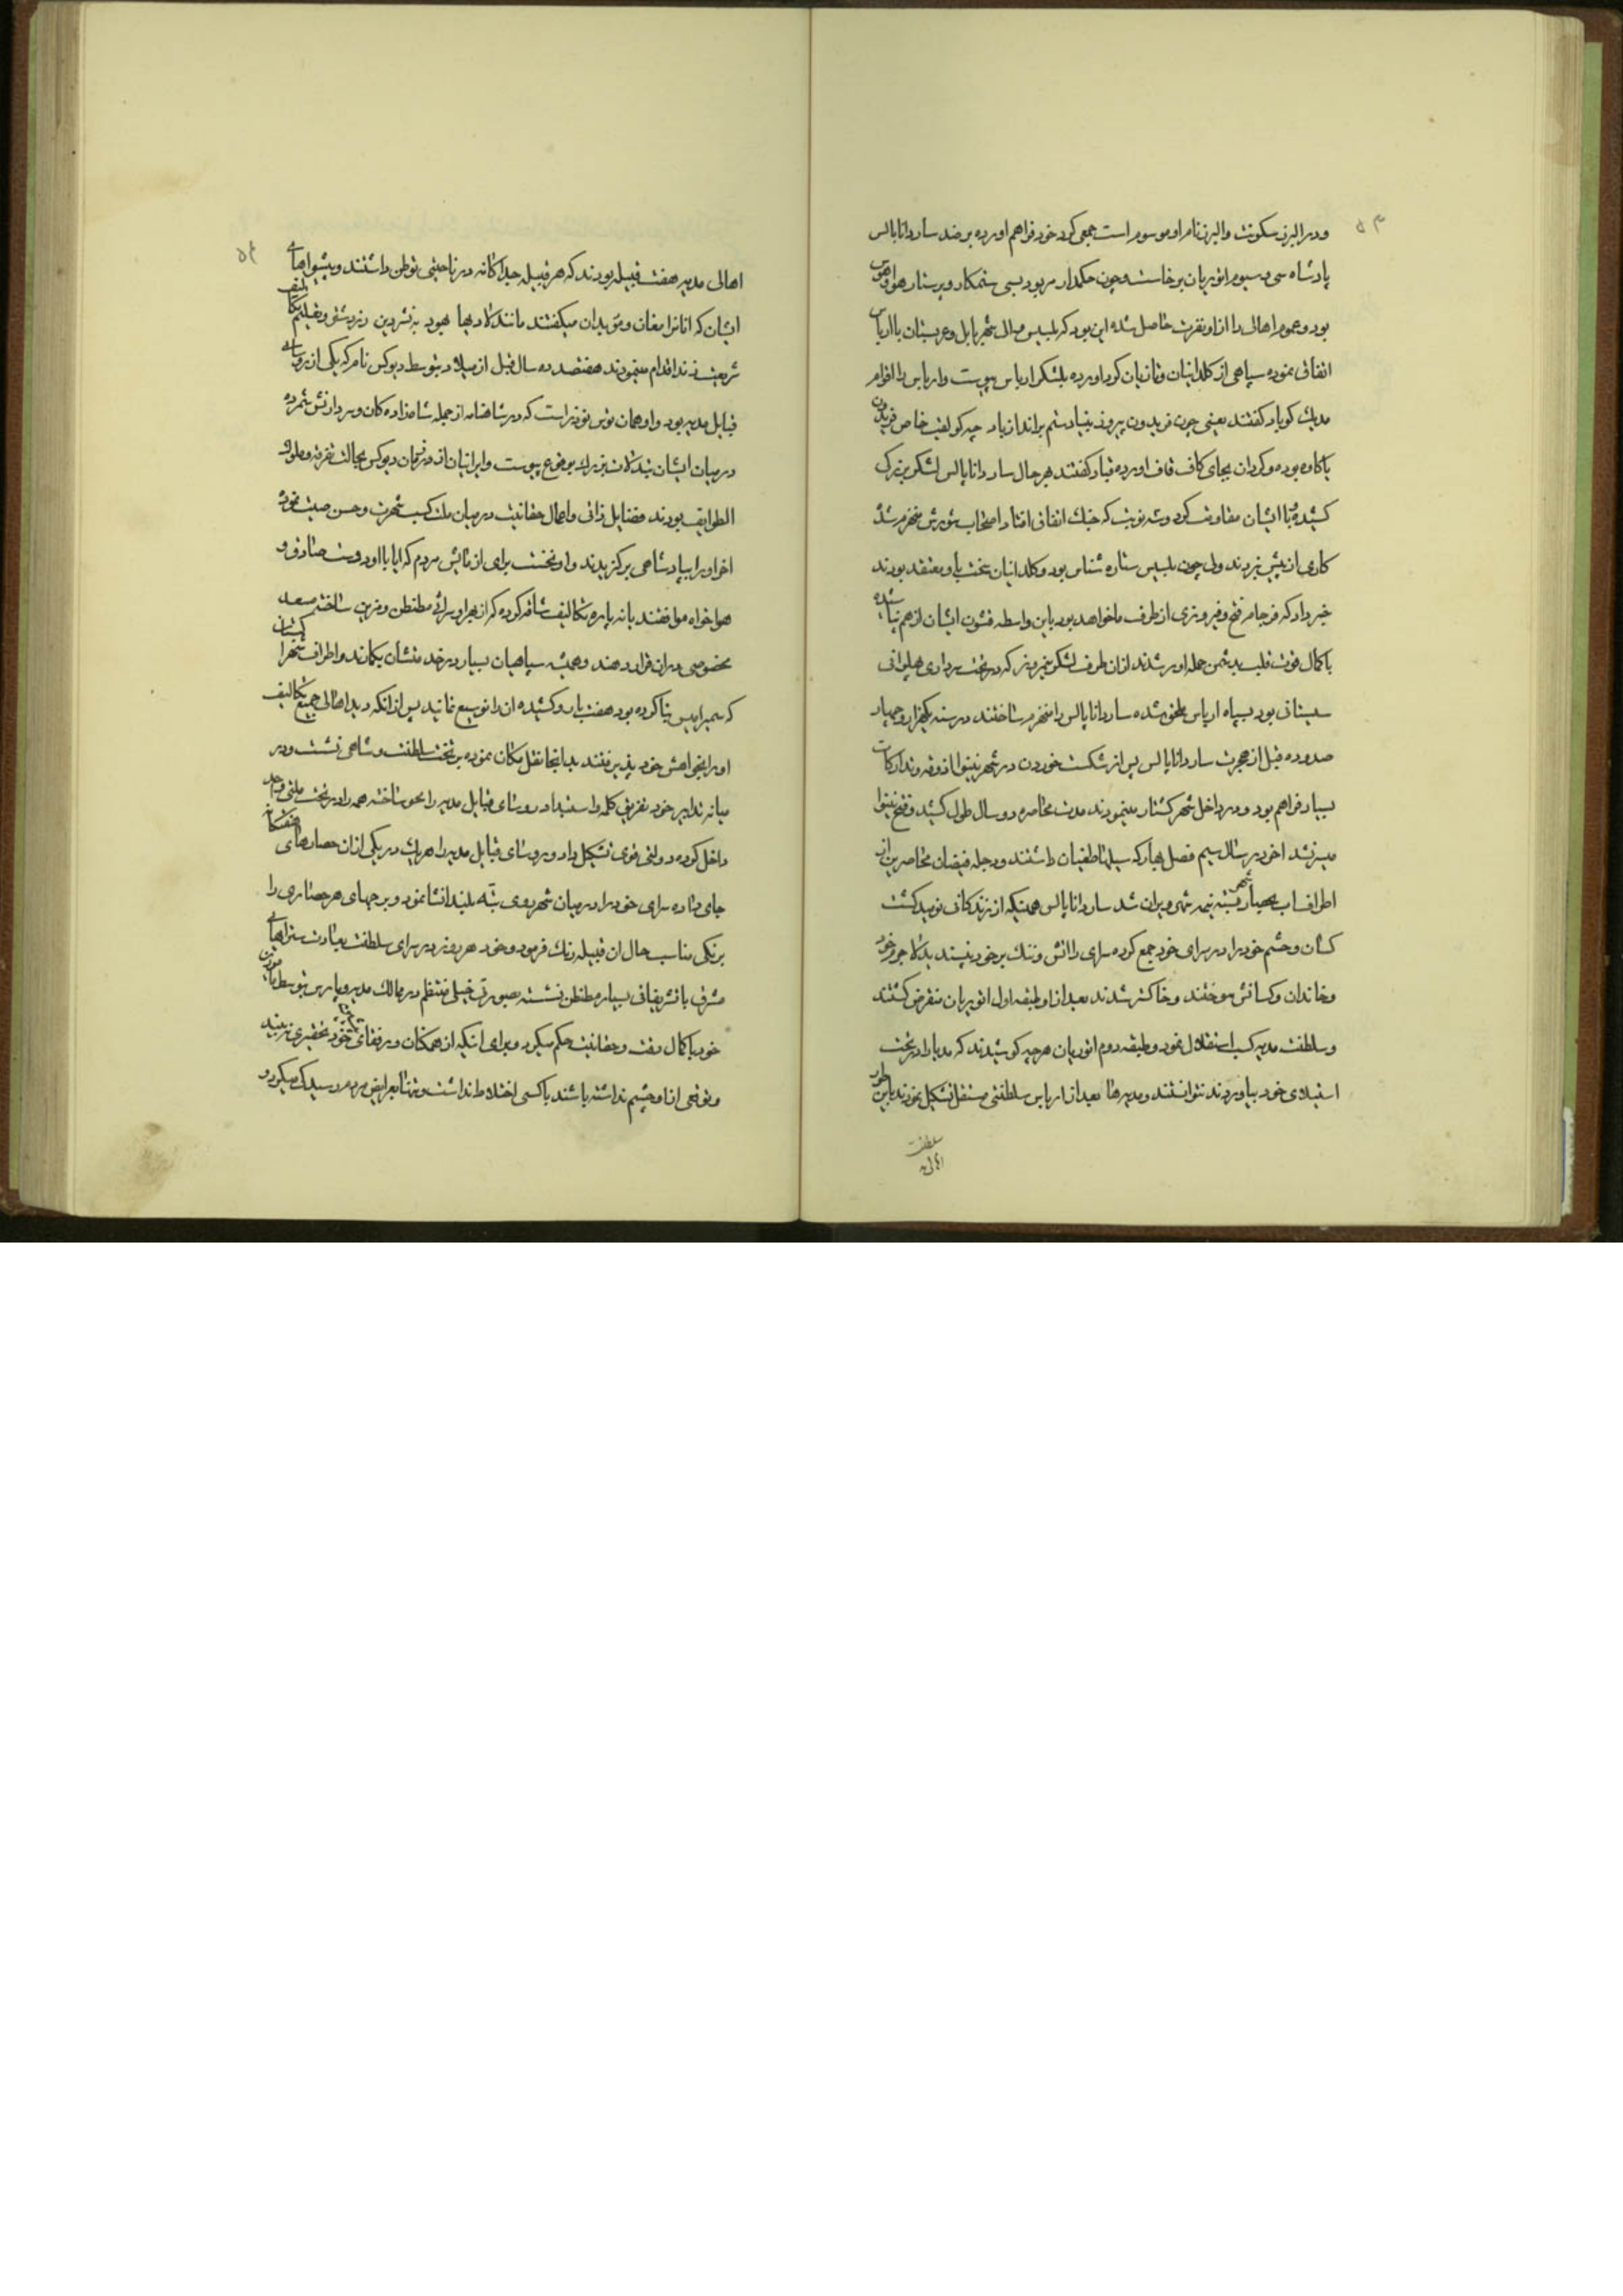 ۵۳
ودر البرز سکونت والبرز بنام او موسوم است جمعی کرد خود فراهم اورده بر ضد ساردانا پالس
پادشاه سی وسیوم اثوریان برخاست وچون حکمدار مزبور بسی ستمکار وپرستار هوا وهوس
بود وعموم اهالی را از او نفرت حاصل شده این بود که بلیس والی شهر بابل وعربستان با ارباس
اتفاق نموده سپاهی از کلدانیان وتازیان کرد اورده بلشکر ارباس پیوست وارباس را اقوام
مدیك کوباد کفتند یعنی چون فریدون پیروز بنیاد ستم براندازباد چه کو لقب خاص فریدون
یا کاوه بوده وکردان بجای کاف قاف اورده قباد کفتند بهر حال ساردانا پالس لشکر بزرك
کشیده با ایشان مقاومت کرد وسه نوبت که جنك اتفاق افتاد اصحاب شورش منهزم شده
کاری از پیش نبردند ولی چون بلیس ستاره شناس بود وکلدانیان سخت باو معتقد بودند
خبر داد که فرجام فتح وفیروزی از طرف ما خواهد بود باین واسطه قشون ایشان از هم نپاشیده
با کمال قوت قلب بدشمن حمله اور شدند از ان طرف لشکر نیمروز که در تحت سرداری پهلوانی
سیستانی بود بسپاه ارباس ملحق شده ساردانا پالس را منهزم ساختند در سنه یکهزار وچهار
صد وده قبل از هجرت ساردانا پالس پس از شکست خوردن در شهر نینوا اذوقه وتدارکات
بسیار فراهم بود ودر داخل شهر کشتار مینمودند مدت محاصره دو سال طول کشید وفتح نینوا
میسر نشد اخر در سال سیم فصل بهار که سیلها طغیان داشتند ودجله فیضان محاصرین از
اطراف اب بحصار شهر بسته نیمه شهر ویران شد ساردانا پالس همینکه از زندکانی نومید کشت
کسان وحشم خود را در سرای خود جمع کرده سرای را اتش وننك بر خود نپسندیده کام جو مرد
وخاندان وکسانش سوختند وخاکستر شدند بعد از او طبقه اول اثوریان منقرض کشتند
وسلطنت مدیه کسب استقلال نمود وطبقه دوم اثوریان هرچه کوشیدند که مدیا را در تحت
استیلای خود بیاورند نتوانستند ومدیها بعد از ارباس سلطنتی مستقل تشکیل نمودند باین طور
سلطنت
۵۴
اهالی مدیه هفت قبیله بودند که هر قبیله جداکانه در ناحیتی توطن داشتند وپیشواهای
ایشان که انانرا مغان وموبدان میکفتند مانند لاویهای یهود به نشر دین زردشتی وتعلیم
شریعت زند اقدام مینمودند هفتصد وده سال قبل از میلاد بتوسط دیوکس نامی که یکی از رؤسای
قبایل مدیه بود واو همان توس نوذر است که در شاهنامه از جمله شاهزاده کان وسردارانش شمرده
در میان ایشان تبدلات بزرك بوقوع پیوست وایرانیان از زمان دیوکس بحالت تفرقه وملوك
الطوایف بودند فضایل ذاتی واعمال حقانیت در میان ملت کسب شهرت وحسن صیت نموده
اخر او را بپادشاهی برکزیدند واو نخست برای ازمایش مردم که ایا با او دوست صادق و
هواخواه موافقند یا نه پاره تکالیف شاقه کرده که از بهر او سرائی مطنطن ومزین ساخته
مخصوص در ان قرار دهند وهمیشه سپاهیان بسیار در خدمتشان بکمارند واطراف شهر را
که سمیرامیس بنا کرده بود هفت بارو کشیده انرا توسیع نمایند پس از انکه دید اهالی جمیع تکالیف
او را بخواهش خود پذیرفتند بدانجا نقل مکان نموده بر تخت سلطنت وشاهی نشست ودر
میانه تدابیر خود تفریق کلمه واستبداد رؤسای قبایل مدیه را محو ساخته همه را در تحت ملتی واحد
داخل کرده دولتی قوی تشکیل داد ورؤسای قبایل مدیه را هریك در یکی از ان حصارهای هفتکانه
جای داده سرای خود را در میان شهر روی تپه بلند انشا نمود وبرجهای هر حصاری را
برنکی مناسب حال ان قبیله رنك فرمود وخود هر روز در سرای سلطنت
مشرف با تشریفاتی بسیار مطنطن نشسته بصورتی خیلی منتظم در ممالك مدیه وپارس بتوسط مأمورین
خود با کمال دقت وحقانیت حکم میکرد وبرای انکه از همکنان ورفقای خود تحقیری نبیند
وتوقعی از او چشم نداشته باشند با کسی اختلاط نداشت وتنها بعرایض مردم رسیدکی میکرد و